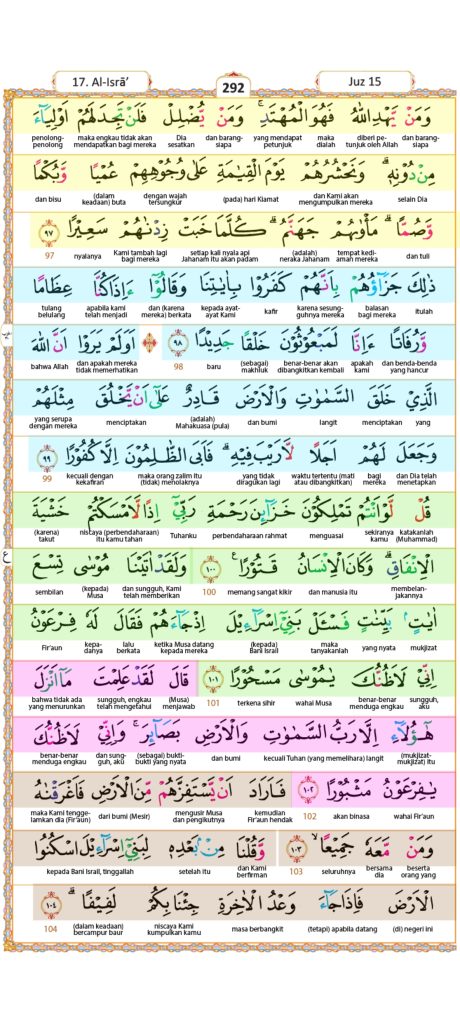 17. Al-Isrā’
292
Juz 15
وَمَنْ يَّهْدِ اللّٰهُ فَهُوَ الْمُهْتَدِۚ وَمَنْ يُّضْلِلْ فَلَنْ تَجِدَ لَهُمْ اَوْلِيَاۤءَ
dan barang-siapa diberi pe-tunjuk oleh Allah maka dialah yang mendapat petunjuk dan barang-siapa Dia sesatkan maka engkau tidak akan mendapatkan bagi mereka penolong-penolong
مِنْ دُوْنِهٖۗ وَنَحْشُرُهُمْ يَوْمَ الْقِيٰمَةِ عَلٰى وُجُوْهِهِمْ عُمْيًا وَّبُكْمًا
selain Dia dan Kami akan mengumpulkan mereka (pada) hari Kiamat dengan wajah tersungkur (dalam keadaan) buta dan bisu
وَّصُمًّاۗ مَأْوٰىهُمْ جَهَنَّمُۗ كُلَّمَا خَبَتْ زِدْنٰهُمْ سَعِيْرًا ۝٩٧
dan tuli tempat kedi-aman mereka (adalah) neraka Jahanam setiap kali nyala api Jahanam itu akan padam Kami tambah lagi bagi mereka nyalanya 97
ذٰلِكَ جَزَاۤؤُهُمْ بِاَنَّهُمْ كَفَرُوْا بِاٰيٰتِنَا وَقَالُوْٓا ءَاِذَا كُنَّا عِظَامًا
itulah balasan bagi mereka karena sesung-guhnya mereka kafir kepada ayat-ayat Kami dan (karena mereka) berkata apabila kami telah menjadi tulang belulang
وَّرُفَاتًا ءَاِنَّا لَمَبْعُوْثُوْنَ خَلْقًا جَدِيْدًا ۝٩٨ اَوَلَمْ يَرَوْا اَنَّ اللّٰهَ
dan benda-benda yang hancur apakah kami benar-benar akan dibangkitkan kembali (sebagai) makhluk baru 98 dan apakah mereka tidak memerhatikan bahwa Allah
الَّذِيْ خَلَقَ السَّمٰوٰتِ وَالْاَرْضَ قَادِرٌ عَلٰٓى اَنْ يَّخْلُقَ مِثْلَهُمْ
yang menciptakan langit dan bumi (adalah) Mahakuasa (pula) menciptakan yang serupa dengan mereka
وَجَعَلَ لَهُمْ اَجَلًا لَّا رَيْبَ فِيْهِۗ فَاَبَى الظّٰلِمُوْنَ اِلَّا كُفُوْرًا ۝٩٩
dan Dia telah menetapkan bagi mereka waktu tertentu (mati atau dibangkitkan) yang tidak diragukan lagi maka orang zalim itu (tidak) menolaknya kecuali dengan kekafiran 99
قُلْ لَّوْ اَنْتُمْ تَمْلِكُوْنَ خَزَاۤىِٕنَ رَحْمَةِ رَبِّيْٓ اِذًا لَّاَمْسَكْتُمْ خَشْيَةَ
katakanlah (Muhammad) sekiranya kamu menguasai perbendaharaan rahmat Tuhanku nistaya (perbendaharaan) itu kamu tahan (karena) takut
الْاِنْفَاقِۗ وَكَانَ الْاِنْسَانُ قَتُوْرًا ۝١٠٠ وَلَقَدْ اٰتَيْنَا مُوْسٰى تِسْعَ
membelan-jakannya dan manusia itu memang sangat kikir 100 dan sungguh, Kami telah memberikan (kepada) Musa sembilan
اٰيٰتٍۢ بَيِّنٰتٍ فَسْـَٔلْ بَنِيْٓ اِسْرَاۤءِيْلَ اِذْ جَاۤءَهُمْ فَقَالَ لَهٗ فِرْعَوْنُ
mukjizat yang nyata maka tanyakanlah (kepada) Bani Israil ketika Musa datang kepada mereka lalu berkata kepa-danya Fir'aun
اِنِّيْ لَاَظُنُّكَ يٰمُوْسٰى مَسْحُوْرًا ۝١٠١ قَالَ لَقَدْ عَلِمْتَ مَآ اَنْزَلَ
sungguh, aku benar-benar menduga engkau wahai Musa terkena sihir 101 (Musa) menjawab sungguh, engkau telah mengetahui bahwa tidak ada yang menurunkan
هٰٓؤُلَاۤءِ اِلَّا رَبُّ السَّمٰوٰتِ وَالْاَرْضِ بَصَاۤىِٕرَۚ وَاِنِّيْ لَاَظُنُّكَ
(mukjizat-mukjizat) itu kecuali Tuhan (yang memelihara) langit dan bumi (sebagai) bukti-bukti yang nyata dan sung-guh, aku benar-benar menduga engkau
يٰفِرْعَوْنُ مَثْبُوْرًا ۝١٠٢ فَاَرَادَ اَنْ يَّسْتَفِزَّهُمْ مِّنَ الْاَرْضِ فَاَغْرَقْنٰهُ
wahai Fir'aun akan binasa 102 kemudian Fir'aun hendak mengusir Musa dan pengikutnya dari bumi (Mesir) maka Kami tengge-lamkan dia (Fir'aun)
وَمَنْ مَّعَهٗ جَمِيْعًاۙ ۝١٠٣ وَّقُلْنَا مِنْۢ بَعْدِهٖ لِبَنِيْٓ اِسْرَاۤءِيْلَ اسْكُنُوا
beserta orang yang bersama dia seluruhnya 103 dan Kami berfirman setelah itu kepada Bani Israil, tinggallah
الْاَرْضَ فَاِذَا جَاۤءَ وَعْدُ الْاٰخِرَةِ جِئْنَا بِكُمْ لَفِيْفًاۗ ۝١٠٤
(di) negeri ini (tetapi) apabila datang masa berbangkit niscaya Kami kumpulkan kamu (dalam keadaan) bercampur baur 104
ع